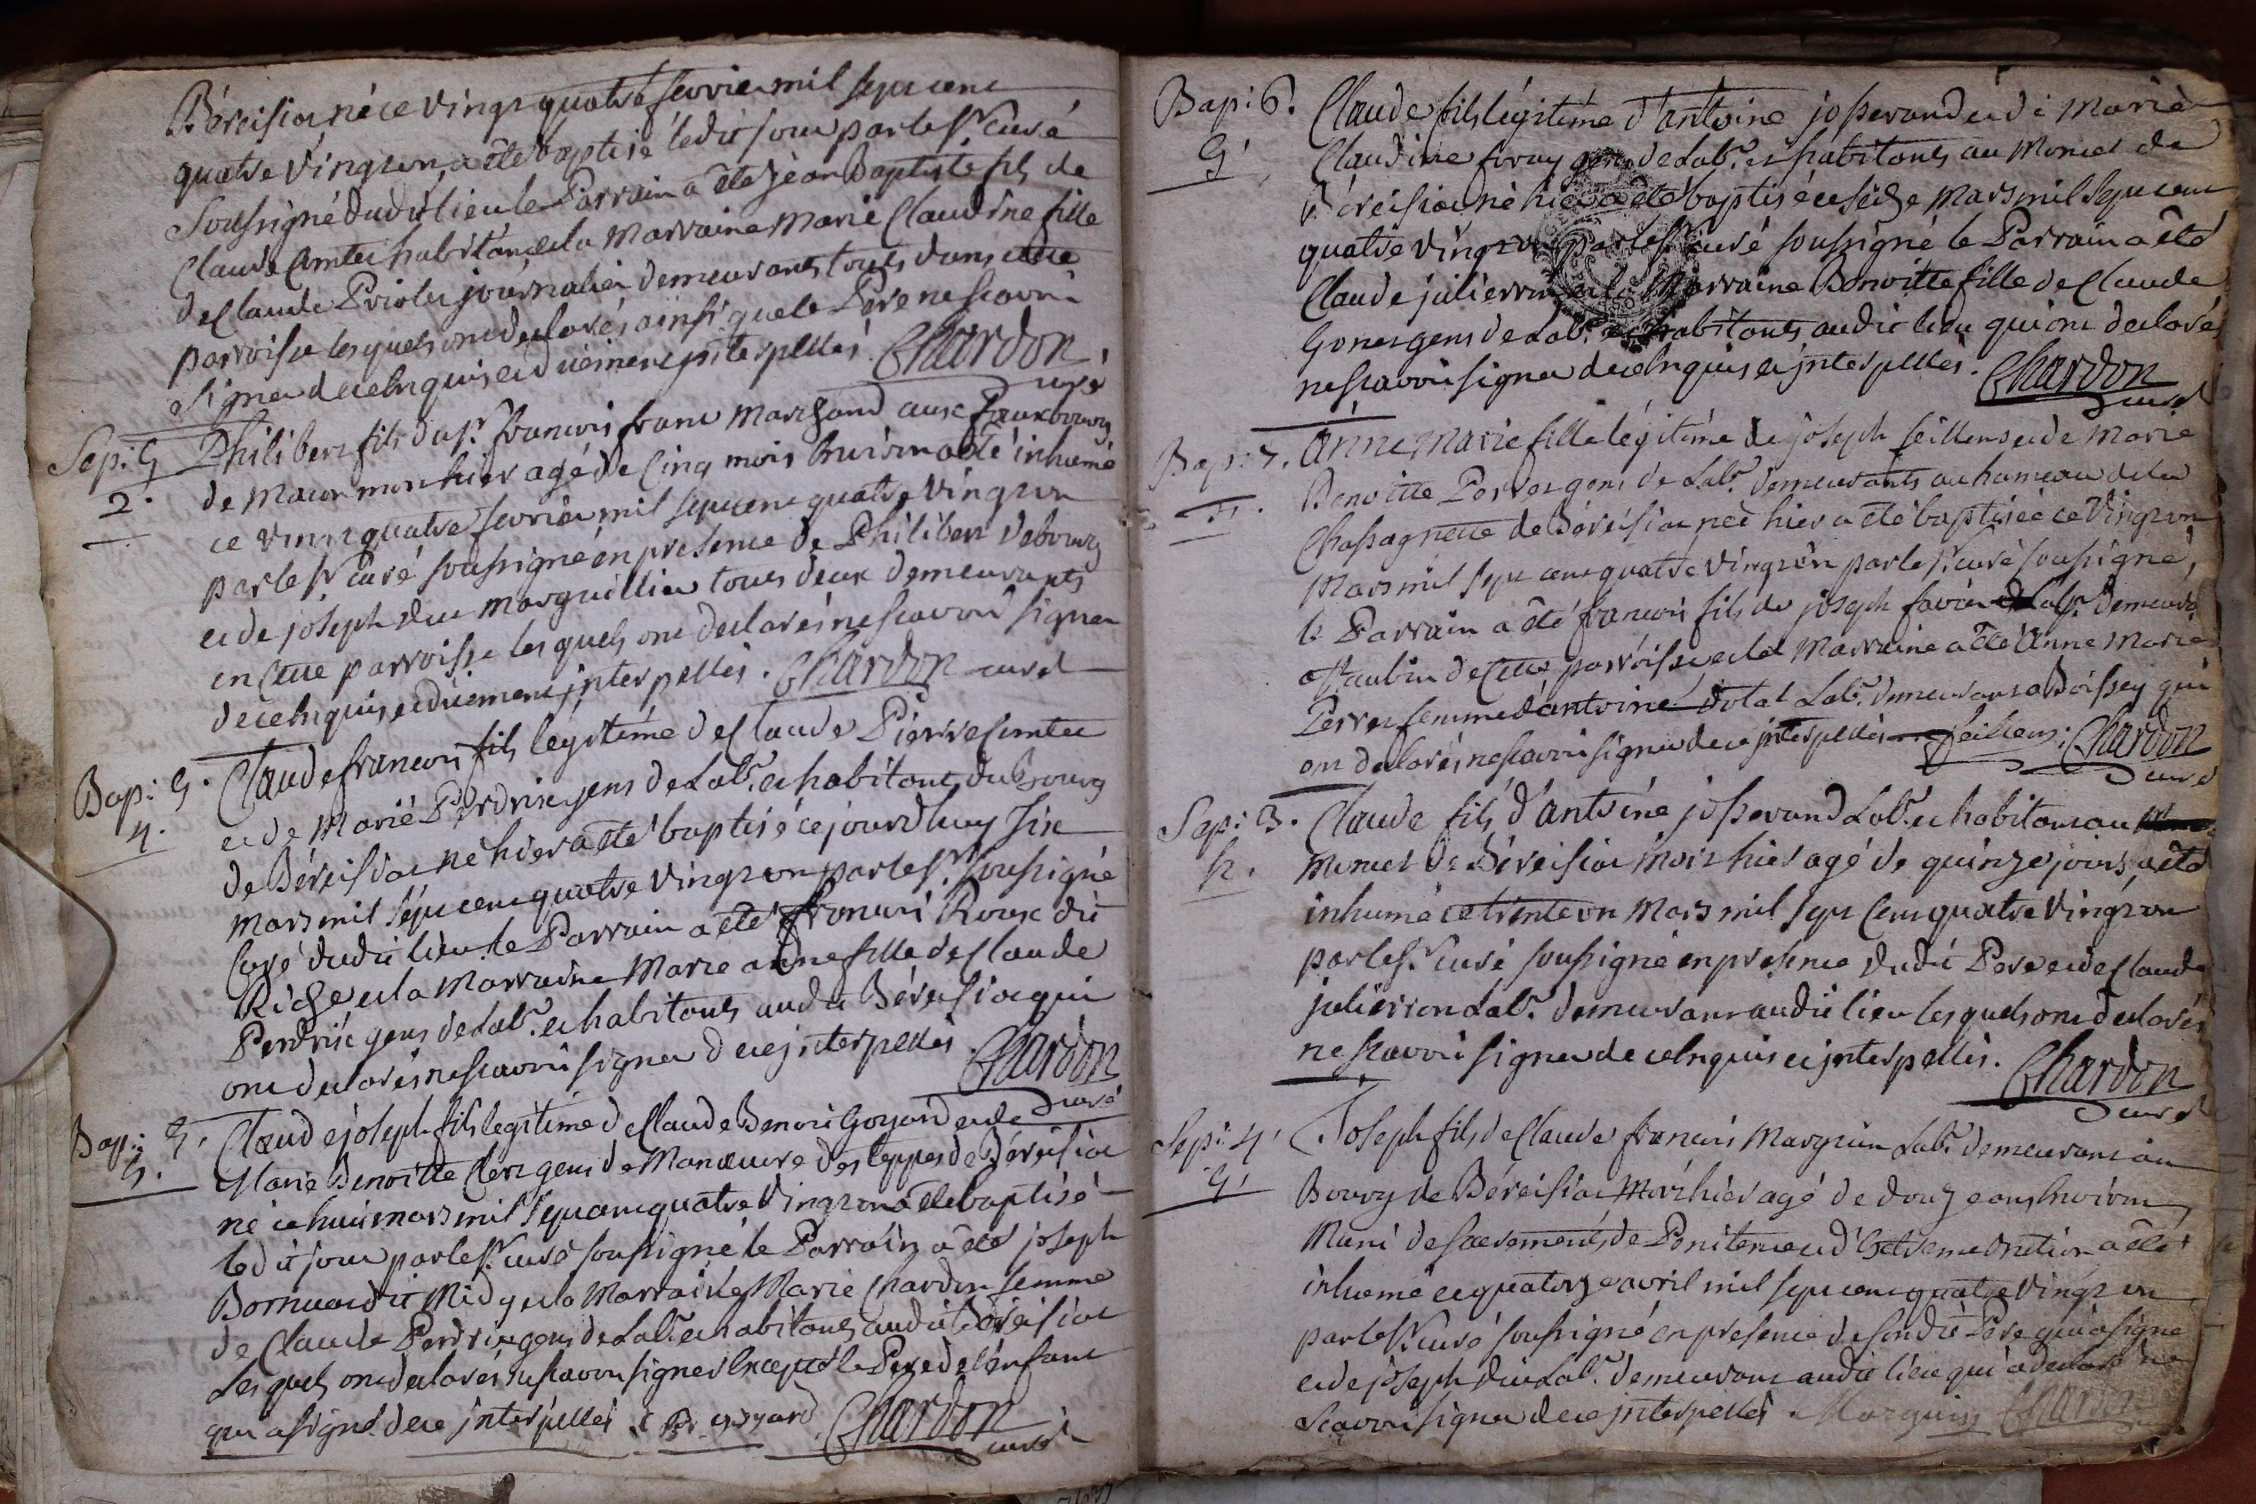 Béreisiat né ce vingt quatre fevrier mil sept cent
quatre vingt un a été baptisé ledit jour par le Sr. Curé
soussigné dudit lieu le Parrain a été Jean Baptiste fils de
Claude Comtet habitant et la Marraine Marie Claudine fille
de Claude Priolet journalier demeurants touts dans cette
parroisse les quels ont declarés ainsi que le Pere ne scavoir
signer de ce enquis et duement interpellés. Chardon
curé
Sep: G
2.
Philibert fils du Sr. francois franc Marchand aux Fauxbourg
de Macon mort hier agé de Cinq mois environ a été inhumé
ce vingt quatre fevrier mil sept cent quatre vingt un
par le Sr. Curé soussigné en presence de Philibert Debourg
et de joseph Marguillier tous deux demeurants
en Cette parroisse les quels ont declarés ne scavoir signer
de ce enquis et duement interpellés. Chardon curé
Bap: G.
4.
Claude francois fils legitime de Claude Pierre Comtet
et de Marie Perdrix gens de Labr. et habitants du bourg
de Béreisiat né hier a été baptisé ce jourdhuy six
Mars mil sept cent quatre vingt un par le Sr. soussigné
Curé dudit lieu le Parrain a été francois Roux dit
Riche et la Marraine Marie anne fille de Claude
Perdrix gens de Labr. et habitants audit Béreisiat qui
ont declarés ne scavoir signer de ce interpellés. Chardon
curé
Bap: G.
5.
Claude joseph fils legitime de Claude Benoit Goyard et de
Marie Benoitte Clerc gens de Manœuvre des teppes de Béreisiat
né ce huit mars mil sept cent quatre vingt un a été baptisé
ledit jour par le Sr. curé soussigné le Parrain a été joseph
dit Midy et la Marraine Marie Chardon femme
de Claude Perdrix gens de Labr. et habitants audit Béreisiat
Les quels ont declarés ne scavoir signer Excepté le Pere de l'enfant
qui a signé de ce interpellés C B goyard Chardon
curé
Bap: 6.
G.
Claude fils légitime d'antoine josserand et de Marie
Claudine gens de Labr. et habitants au Moncet de
Béreisiat né hier a été baptisé ce seize Mars mil sept cent
quatre vingt un par le Sr. curé soussigné le Parrain a été
Claude julierron et la Marraine Benoitte fille de Claude
Gonet gens de Labr. et habitants audit lieu qui ont declarés
ne scavoir signer de ce enquis et interpellés. Chardon
curé
Bap: 7.
Anne Marie fille légitime de joseph feillens et de Marie
Benoitte Perret gens de Labr. demeurants au hameau de la
Chassagnette de Béreisiat née hier a été baptisée ce vingt un
Mars mil sept cent quatre vingt un par le Sr. curé soussigné,
le Parrain a été francois fils de joseph favier Labr. demeurant
a St aubin de Cette parroisse et la Marraine a été Anne Marie
Perret femme d'antoine Labr. demeurant a Boissey qui
ont declarés ne scavoir signer de ce interpellés feillens. Chardon
curé
Sep: 3.
h.
Claude fils d'antoine josserand Labr. et habitant au
Moncet de Béreisiat Mort hier agé de quinze jours, a été
inhumé ce trente un Mars mil sept Cent quatre vingt un
par le Sr. curé soussigné en presence dudit Pere et de Claude
julierron Labr. demeurant audit lieu les quels ont declarés
ne scavoir signer de ce enquis et interpellés. Chardon
curé
Sep: 4.
G.
Joseph fils de Claude francois Marguin Labr. demeurant au
Bourg de Béreisiat Mort hier agé de douze ans environ
Muni des sacrements de Penitence et d'Extreme onction a été
inhumé ce quatorze avril mil sept cent quatre vingt un
par le Sr. Curé soussigné en presence de sondit Pere qui a signé
et de joseph Labr. demeurant audit lieu qui a declaré ne
scavoir signer de ce interpellés. Marguin Chardon